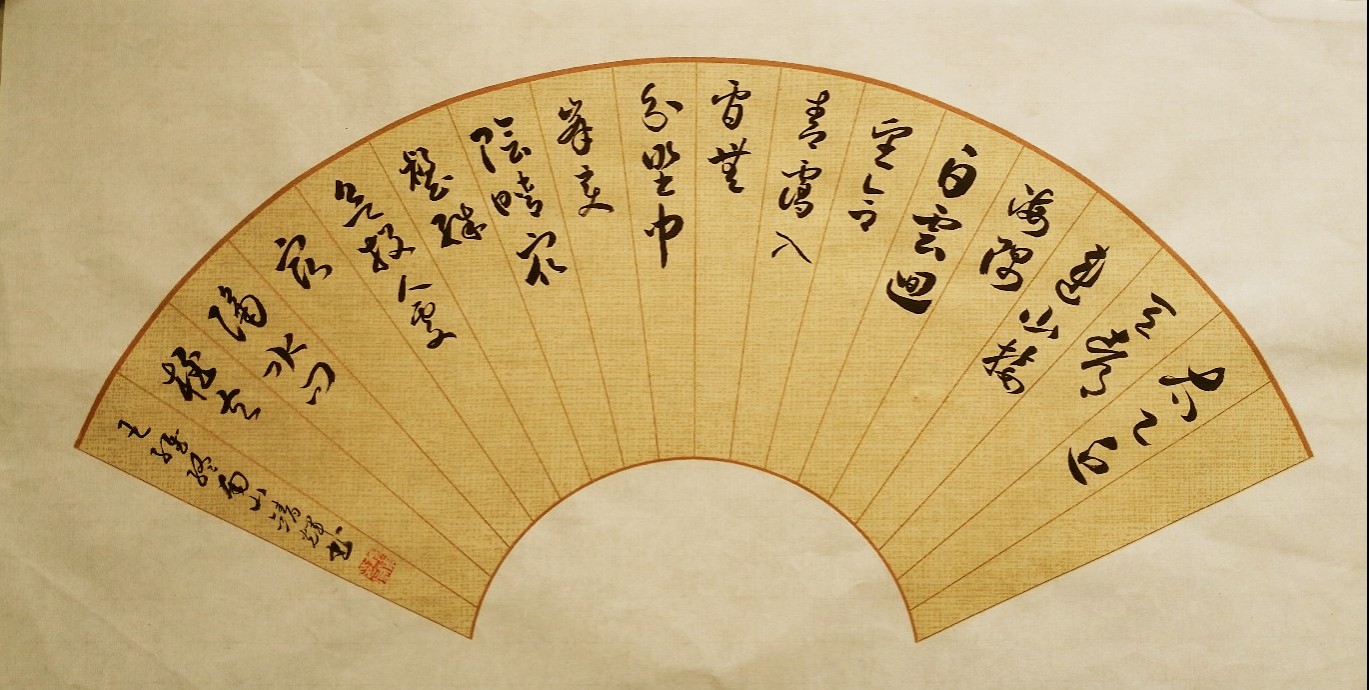 太乙近
天都
連山接
海隅
白雲迴
望合
青靄入
看無
分埜中
峯變
陰晴眾
壑殊
欲投人處
宿
隔水问
樵夫
王維終南山書